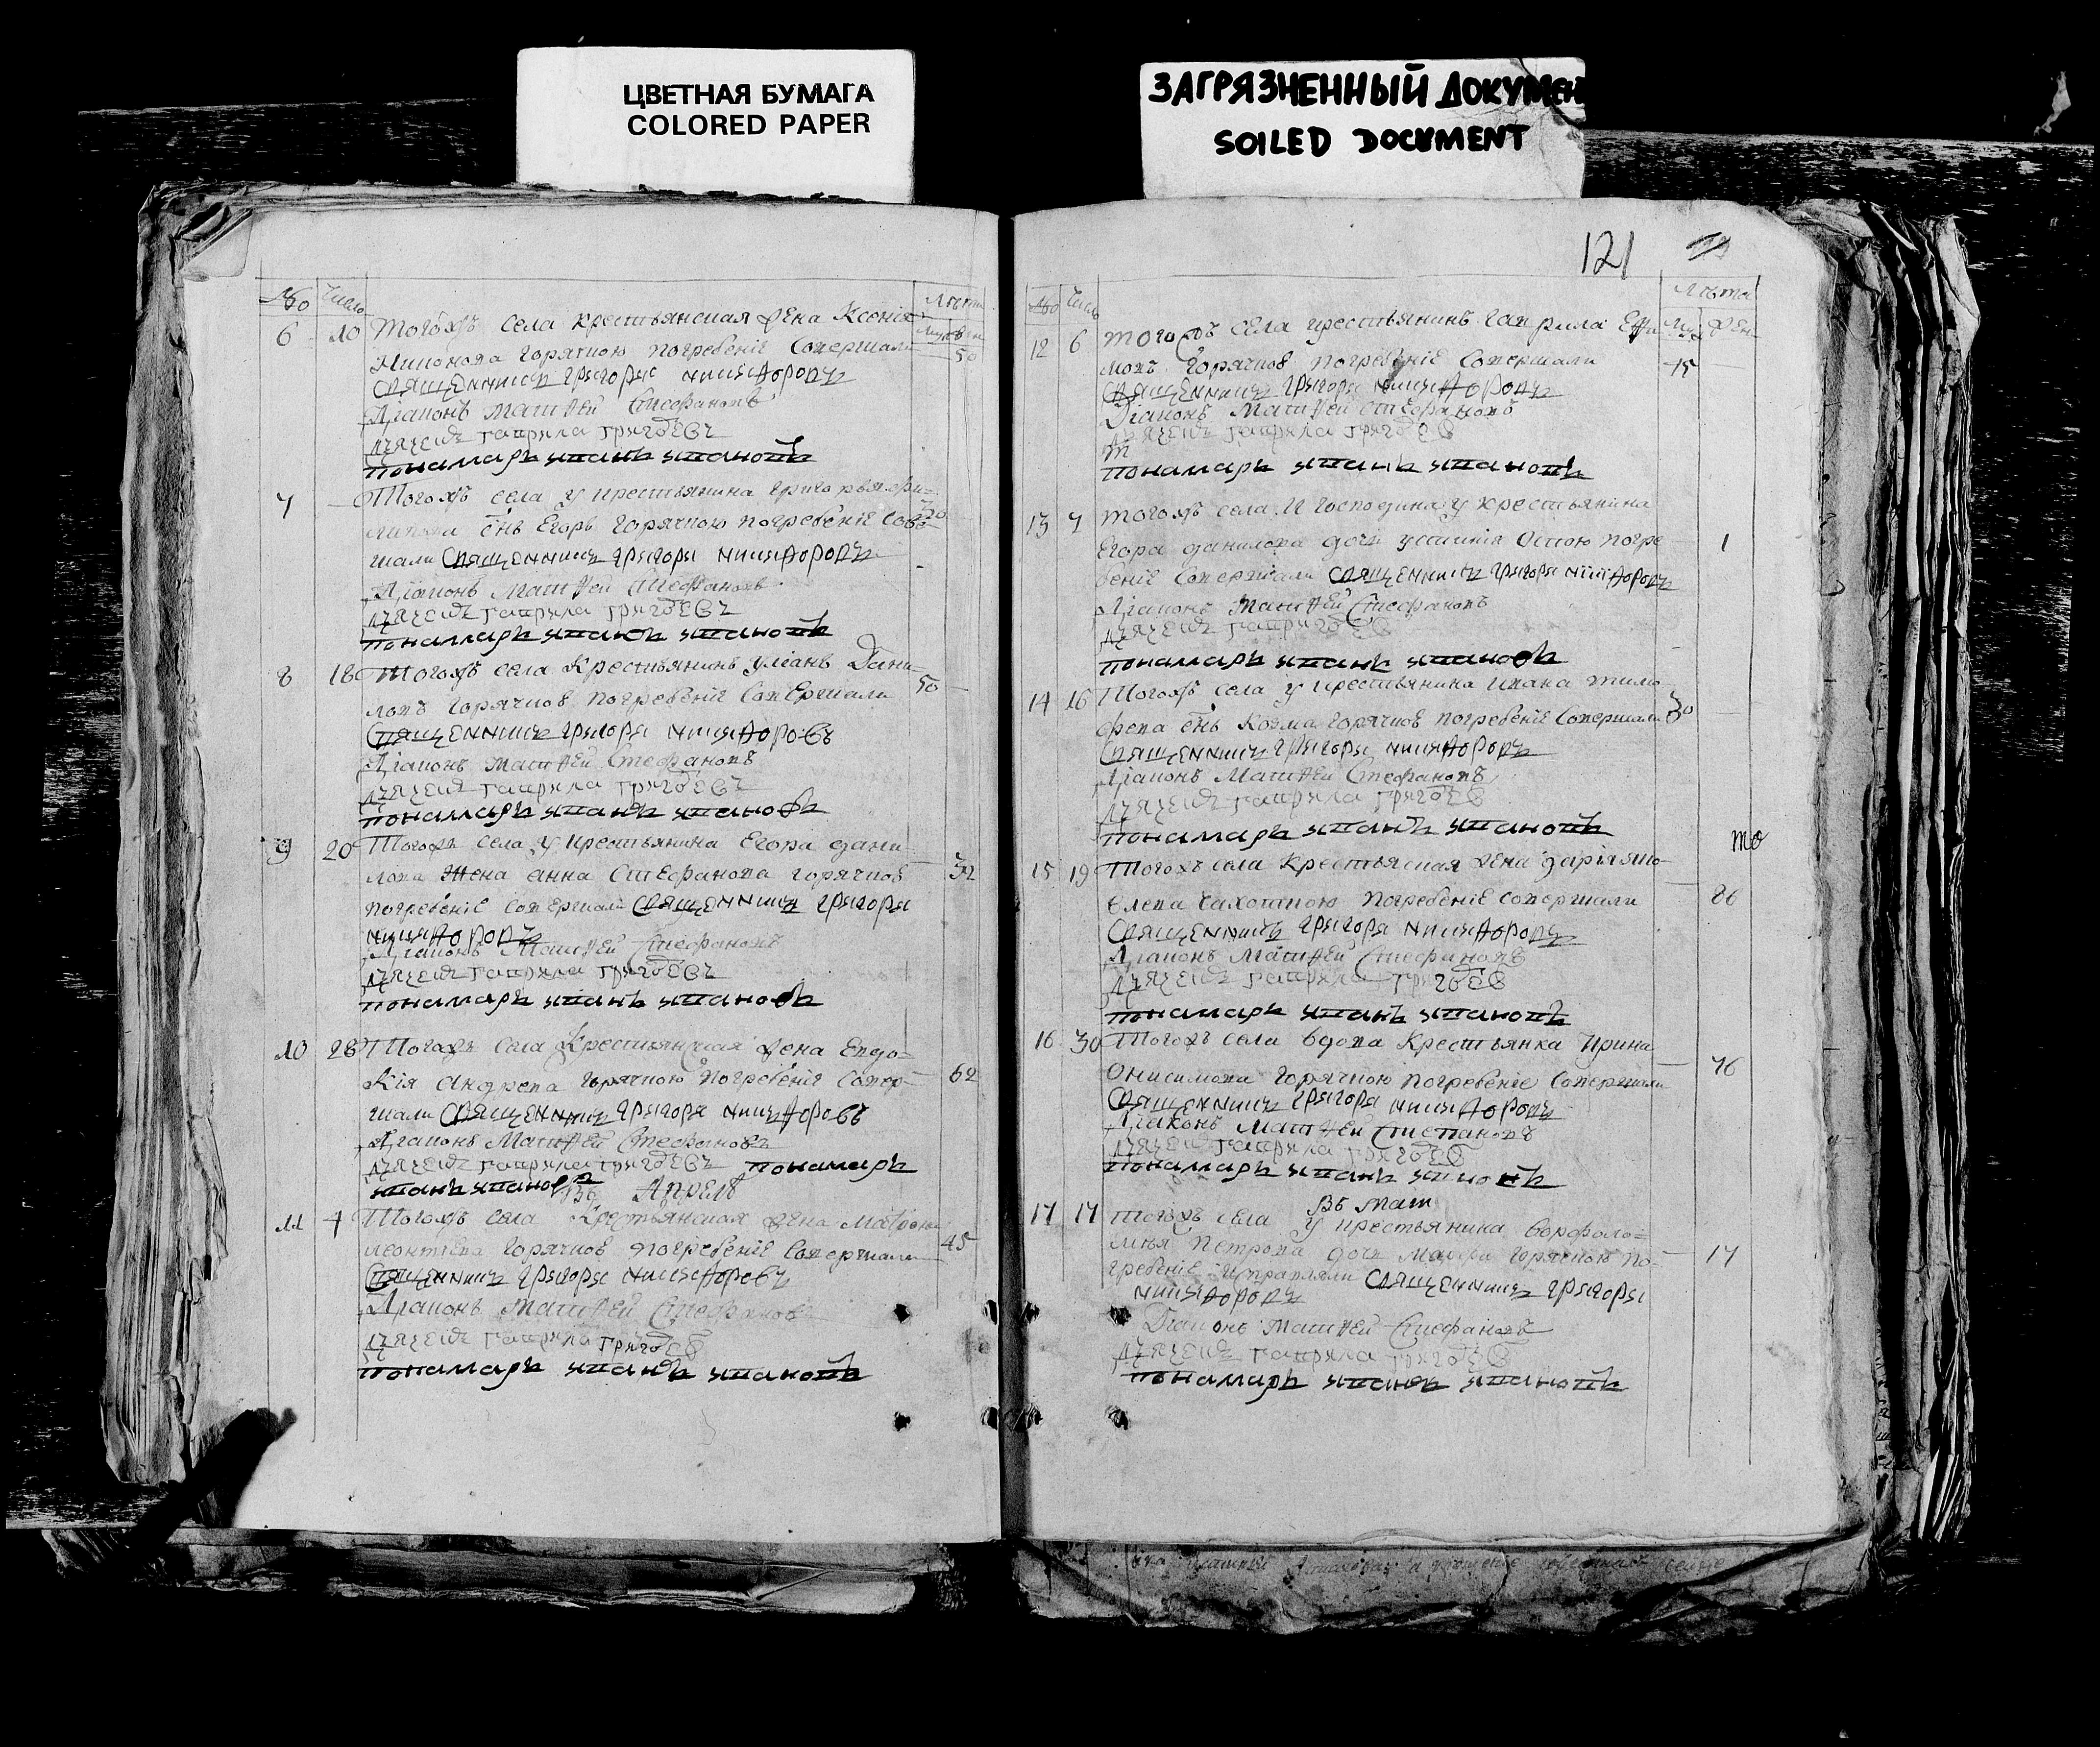 ЦВЕТНАЯ БУМАГА
COLORED PAPER
ЗАГРЯЗНЕННЫЙ ДОКУМЕН
SOILED DOCUMENT
121
№ Число Лѣта
6 10 Тогожъ села крестьянская жена Ксенія 50
горячкою погребеніе совершали
священникъ Григорый Никифоровъ
Діаконъ Матѳей Стефановъ
дьячекъ Гаврила Григорьевъ
пономарь Иванъ Ивановъ
7 Тогожъ села у крестьянина Григорья Фи=
липова снъ Егоръ горячкою погребеніе сове
шали священникъ Григоры Никифоровъ
Діаконъ Матѳей Стефановъ
дьячекъ Гаврила Григорьевъ
пономарь Иванъ Ивановъ
8 18 Тогожъ села Крестьянинъ Уліанъ Дани= 50
ловъ горячков погребеніе совершали
священникъ Григоры Никифоровъ
Діаконъ Матѳей Стефановъ
дьячекъ Гаврила Григорьевъ
пономарь Иванъ Ивановъ
9 20 Тогожъ села у крестьянина Егора Дани
лова жена Анна Стефанова горячков 32
погребеніе совершали священникъ Григоры
Никифоровъ
Діаконъ Матѳей Стефановъ
дьячекъ Гаврила Григорьевъ
пономарь Иванъ Ивановъ
10 28 Тогожъ села Крестьянская жена Евдо=
кія Андрева горячкою погребеніе совер= 62
шали священникъ Григоря Никифоровъ
Діаконъ Матѳей Стефановъ
дьячекъ Гаврила Григорьевъ пономарь
Иванъ Ивановъ
Въ Апрелѣ
11 7 Тогожъ села Крестьянская жена Матрона
Леонтьева горячков погребеніе совершали 45
священникъ Григоры Никифоровъ
Діаконъ Матѳей Стефановъ
дьячекъ Гаврила Григорьев
пономарь Иванъ Ивановъ
№ Число Лѣта
12 6 Тогожъ села крестьянинъ Гаврила Ефи
мовъ горячков погребеніе совершали 75
священникъ Григоры Никифоровъ
Діаконъ Матѳей Стефановъ
дьячекъ Гаврила Григорьев
пономарь Иванъ Ивановъ
13 7 Тогожъ села и господина у крестьянина
Егора Данилова дочь Устинія оспою погре 1
беніе совершали священникъ Григоры Никифоровъ
Діаконъ Матѳей Стефановъ
дьячекъ Гаврила Григорьев
пономарь Иванъ Ивановъ
14 16 Тогожъ села у крестьянина Ивана Тимо
фева снъ Козма горячков погребеніе совершали 30
священникъ Григоры Никифоровъ
Діаконъ Матѳей Стефановъ
дьячекъ Гаврила Григорьев
пономарь Иванъ Ивановъ
15 19 Тогожъ села крестьяская жена Дарія
погребеніе совершали 86
священникъ Григоря Никифоровъ
Діаконъ Матѳей Стефановъ
дьячекъ Гаврила Григорьев
пономарь Иванъ Ивановъ
16 30 Тогожъ села вдова крестьянка Ирина
Онисимова горячкою погребеніе совершали 76
священникъ Григоря Никифоровъ
Діаконъ Матѳей Степановъ
дьячекъ Гаврила Григорьев
пономарь Иванъ Ивановъ
Въ Маи
17 17 Тогожъ села у крестьянина Ворфоло=
мья Петрова дочь Марфа горячкою по= 17
гребеніе исправляли священникъ Григоры
Никифоровъ
Діаконъ Матѳей Стефановъ
дьячекъ Гаврила Григорьев
пономарь Иванъ Ивановъ